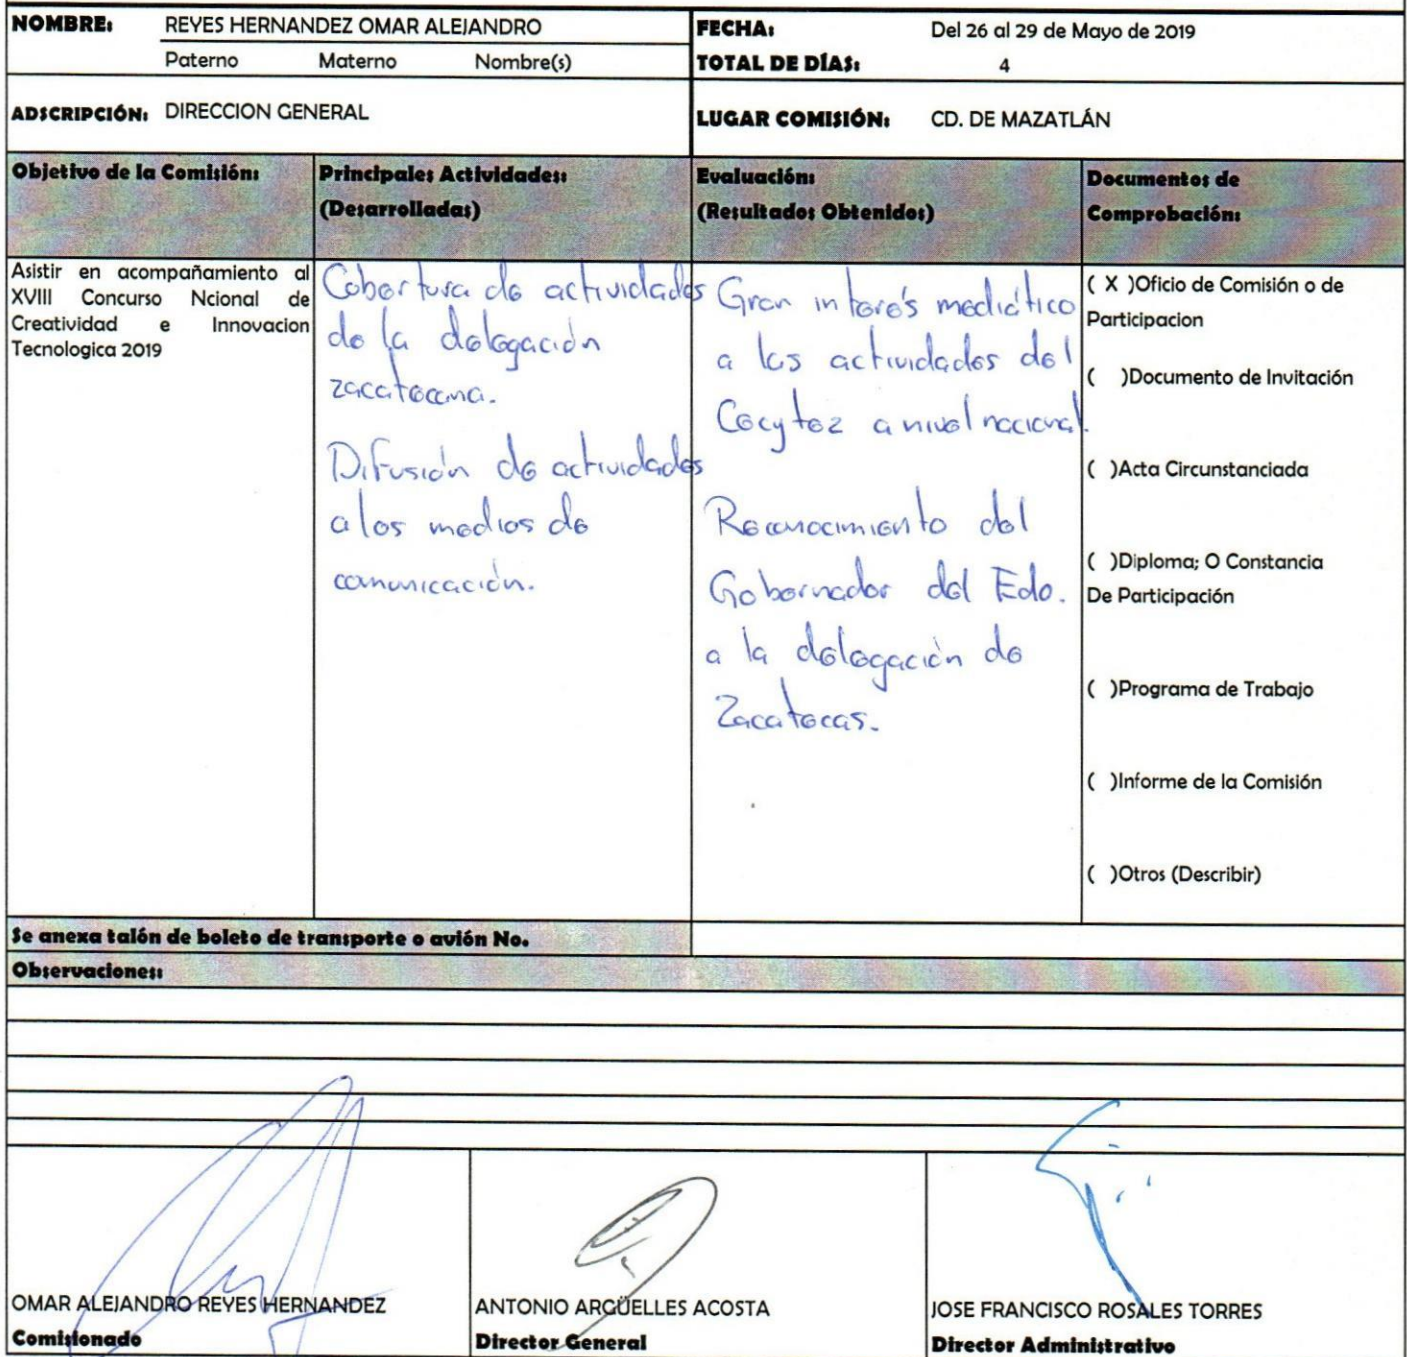 NOMBRE: REYES HERNANDEZ OMAR ALEJANDRO
Paterno Materno Nombre(s)
FECHA: Del 26 al 29 de Mayo de 2019
TOTAL DE DÍAS: 4
ADSCRIPCIÓN: DIRECCION GENERAL
LUGAR COMISIÓN: CD. DE MAZATLÁN
Objetivo de la Comisión:
Asistir en acompañamiento al
XVIII Concurso Ncional de
Creatividad e Innovacion
Tecnologica 2019
Principales Actividades:
(Desarrolladas)
Cobertura de actividades
de la delegación
zacatecana.
Difusión de actividades
a los medios de
comunicación.
Evaluación:
(Resultados Obtenidos)
Gran interés mediático
a las actividades del
Cocytez a nivel nacional.
Reconocimiento del
Gobernador del Edo.
a la delegación de
Zacatecas.
Documentos de
Comprobación:
( X )Oficio de Comisión o de
Participacion
( )Documento de Invitación
( )Acta Circunstanciada
( )Diploma; O Constancia
De Participación
( )Programa de Trabajo
( )Informe de la Comisión
( )Otros (Describir)
Se anexa talón de boleto de transporte o avión No.
Observaciones:
OMAR ALEJANDRO REYES HERNANDEZ
Comisionado
ANTONIO ARGÜELLES ACOSTA
Director General
JOSE FRANCISCO ROSALES TORRES
Director Administrativo